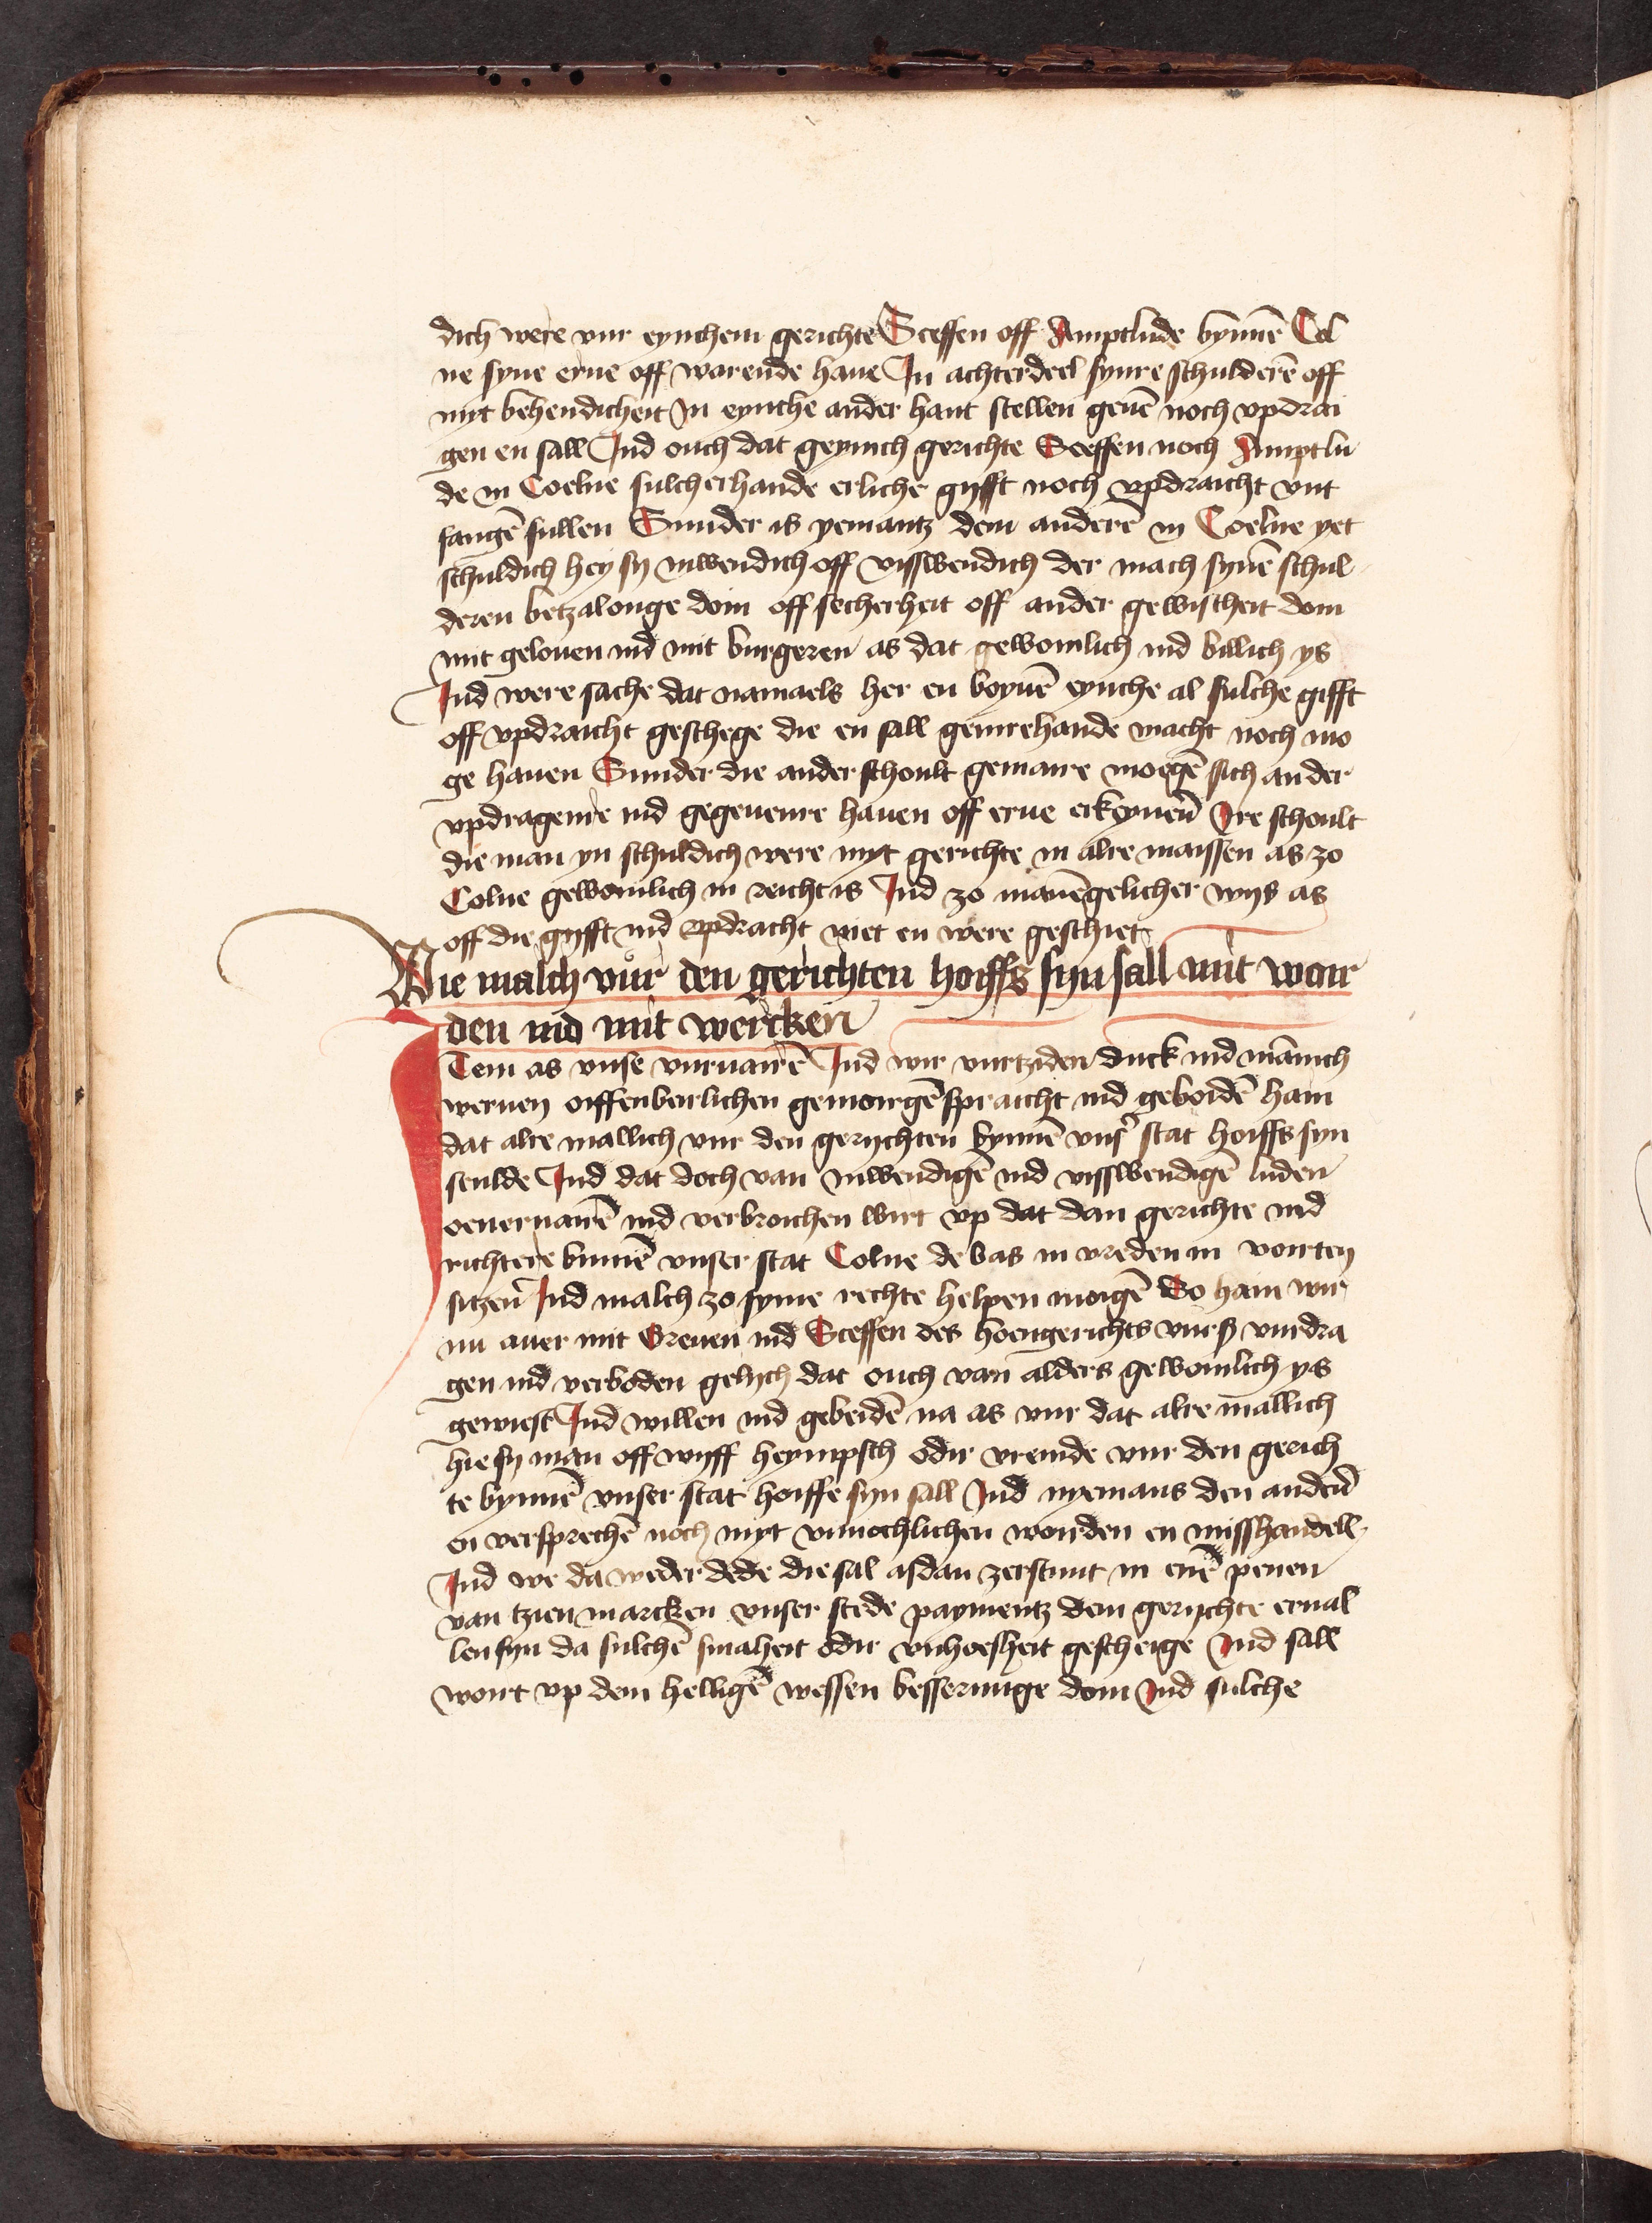 dich were vur eynchem gerichte Sceffen off Amptlude bynnē Col
ne syne erue off varende haue In achterdeel synre schulderē off
myt behendicheit In eynche ander hant stellen geuē noch vpdrai
gen en sall Ind ouch dat geynich gerichte Sceffen noch Amptlu
de in Coelne sulcherhande erliche gyfft noch vpdraicht vnt
fangē sullen Sunder is yemantz dem anderē in Coelne yet
schuldich hey sy inwendich off visswendich der mach synē schul
deren betzalonge doin off secherheit off ander gewisheit doin
mit gelouen ind mit burgeren as dat gewoinlich ind billich ys
Ind were sache dat namaels her en boyuē eynche al sulche gifft
off vpdraicht geschege die en sall geinrehande macht noch mo
ge hauen Sunder die ander schoult gemanre moegē sich an der
vpdragenre ind gegeuenre hauen off erue erkoyuerē Ire schoult
die man yn schuldich were myt gerichte in alre maissen as zo
Colne gewoinlich in reicht is Ind zo mānēgelicher wys as
off die gyfft ind vpdracht niet en were geschiet
Wie malch vur den gerichten hoiffs syn sall mit wor
den ind mit wercken
Item as vnse vuruairē Ind wir vurtziden duck ind mānich
weruen oiffenberlichen gemorgēspraicht ind geboidē hain
dat alre mallich vur den gerychten bynnē vnsr̄ stat hoiffs syn
seulde Ind dat doch van inwendigē ind visswendigē luden
oeueruairē ind verbroichen wirt vp dat dan gerichte ind
richtere binnē vnser stat Colne de bas in vreden in vorten
sitzen Ind malch zo syme rechte helpen moigē So hain wir
nu auer mit Greuen ind Sceffen des hoengerichts vurß vurdra
gen ind verboden gelych dat ouch van alders gewoinlich ys
gewiest Ind willen ind gebeidē na as vur dat alre mallich
hie sy man off wyff heympsch odir vremde vur den gerich
te bynnē vnser stat hoiffs syn sall Ind nyemans den anderē
en versprechē noch myt vnnochlichen worden en misshandell
Ind we da weder dede die sal asdan zerstunt in enē penen
van tzien marcken vnser stede paymentz dem gerychte erual
len syn da sulchē smaheit odir vnhoesheit gescheige Ind sall
vort vp dem helligē wessen besserunge doin Ind sulche